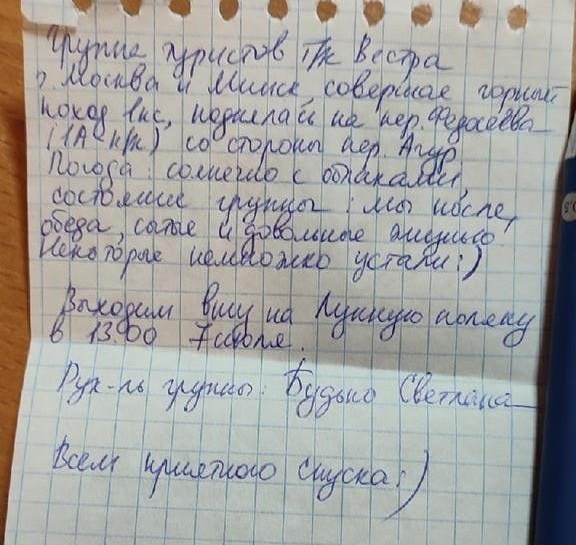 Группа туристов т/к Вестра
г. Москва и Минск, совершае горный
поход 1кс, поднялай на пер. Федосеева
(1А-к/к) со стороны пер. Агур.
Погода: солнечно с облаками,
состояние группы: мы после
обеда, сытые и довольные жизнью.
Некоторые немножко устали:)
Выходим вниз на Лунную поляну
в 13.00 7 июля.
Рук-ль группы: Будько Светлана
Всем приятного спуска:)